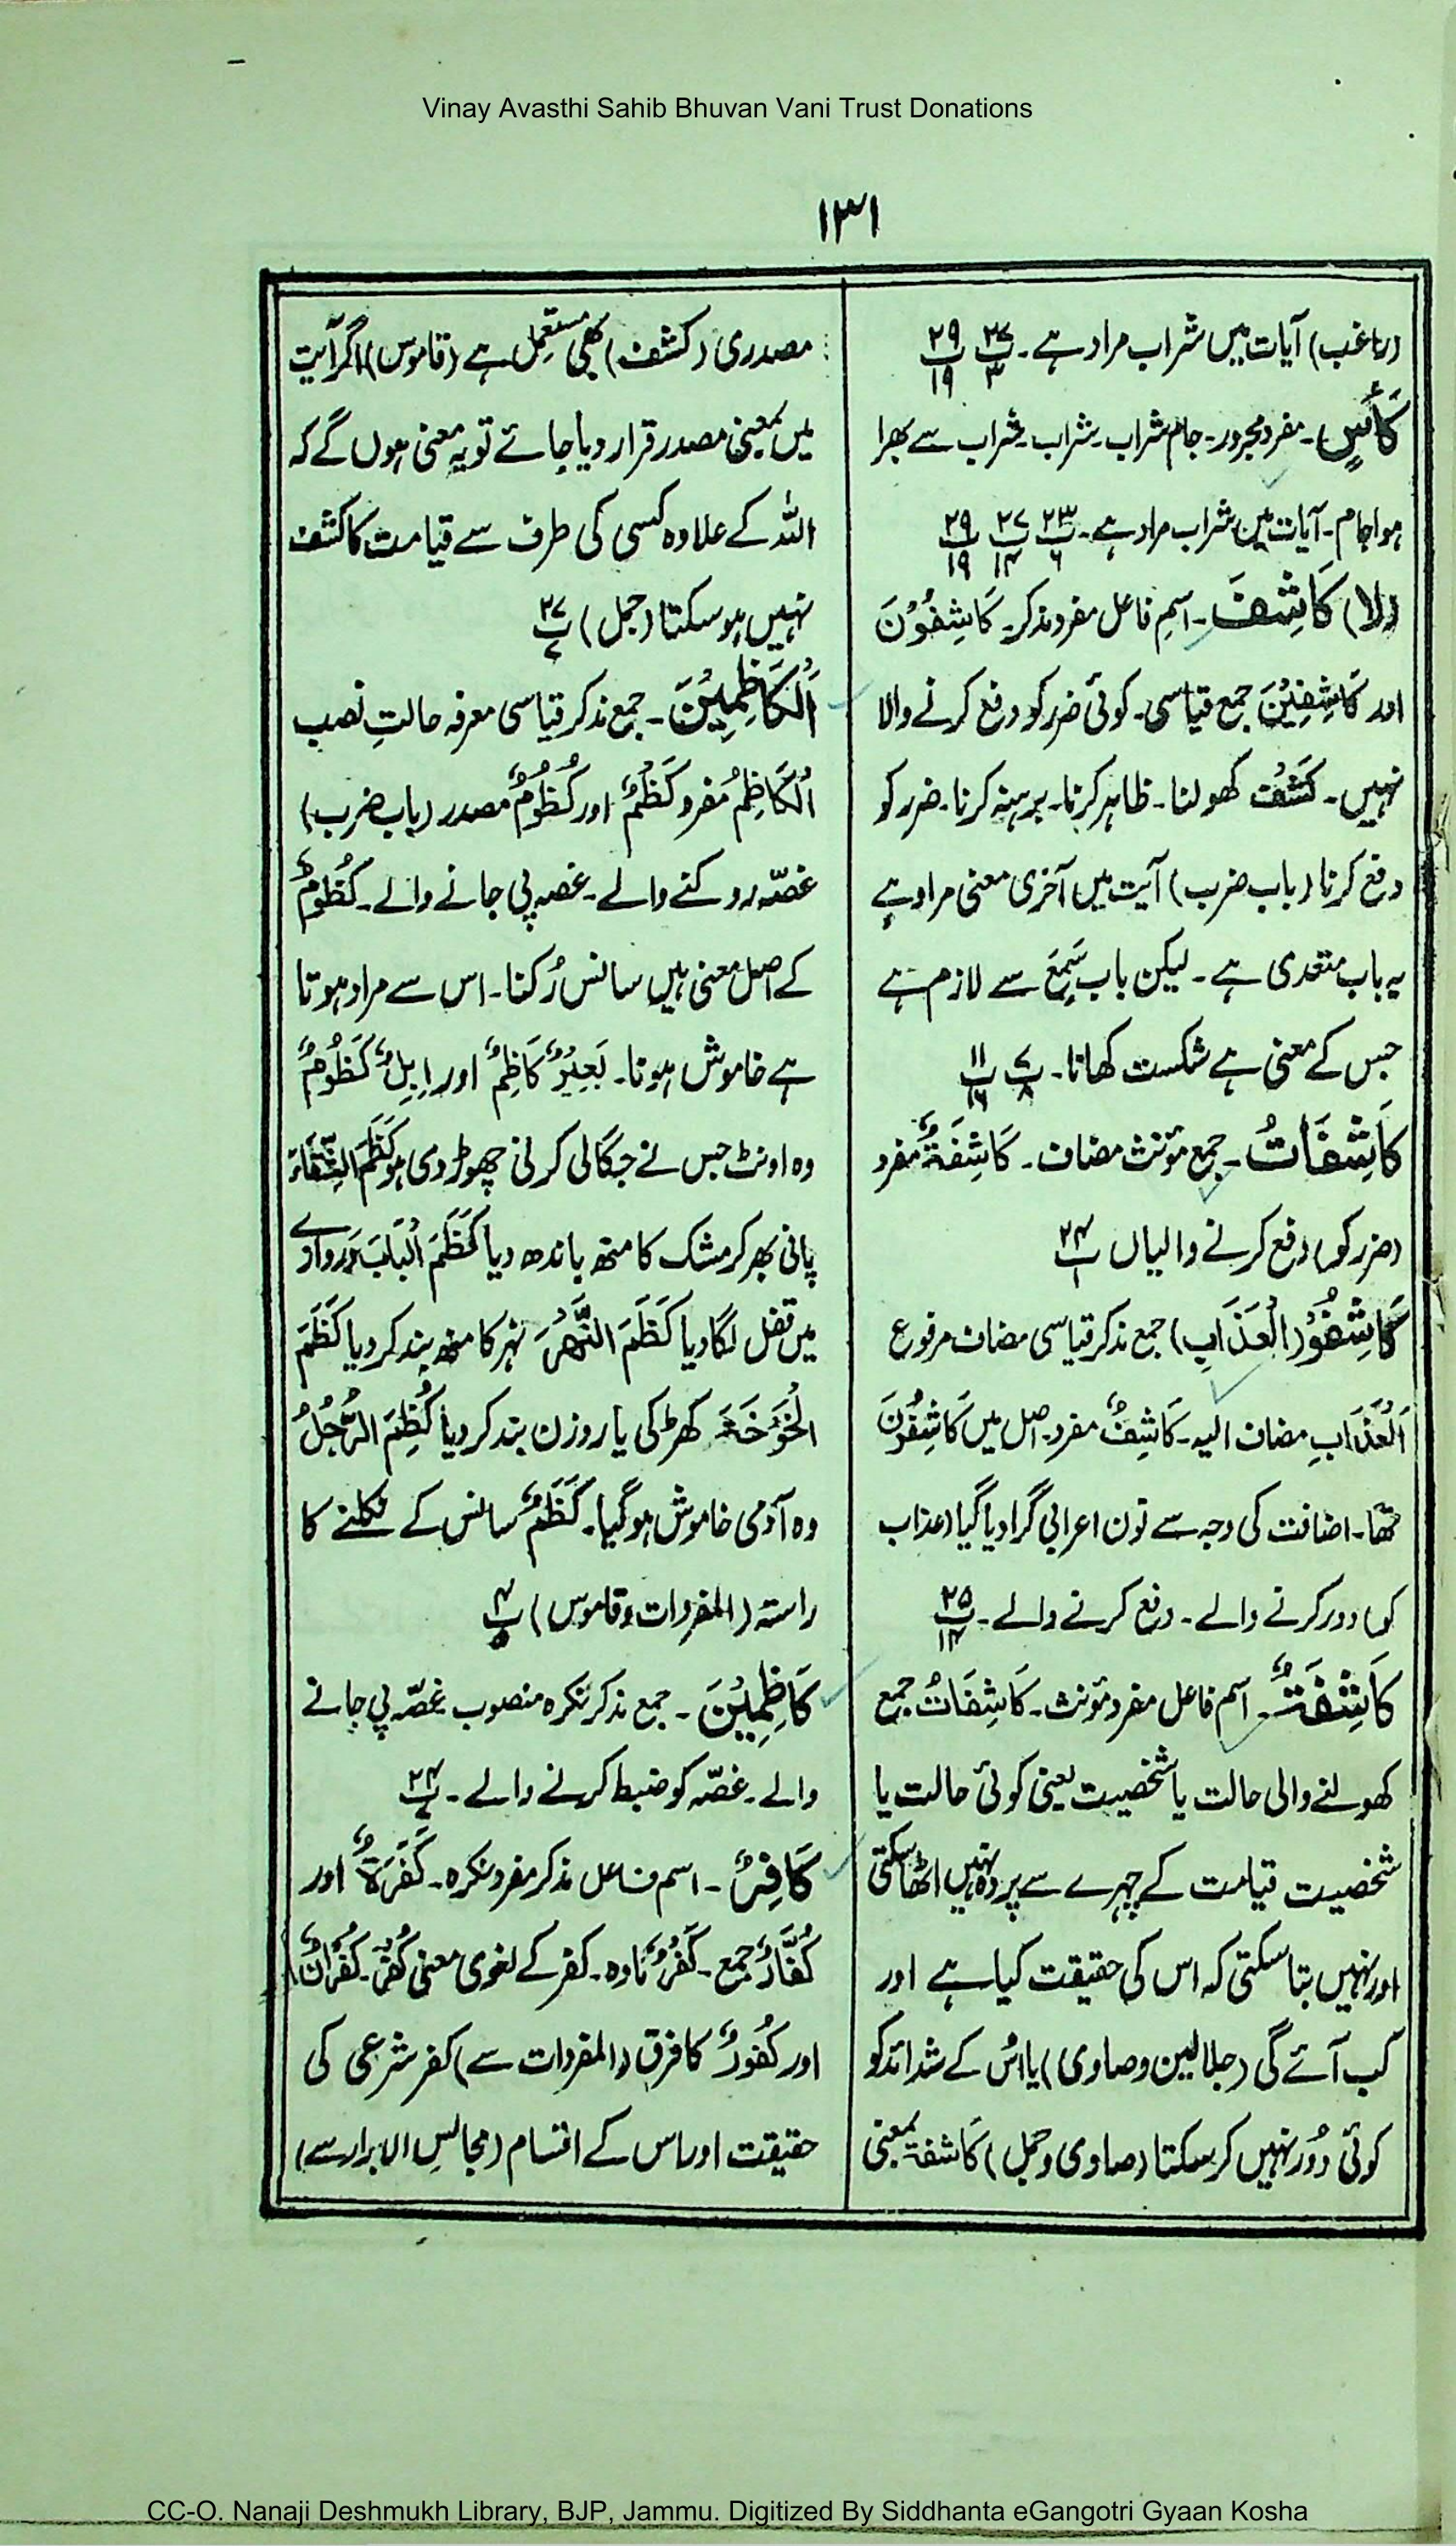 Vinay Avasthi Sahib Bhuvan Vani Trust Donations
۱۳۱
(راغب) آیات میں شراب مراد ہے۔ پ۲۷/۳ پ۲۹/۱۹
كَأْسٍ۔ مفرد مجرور۔ جام شراب۔ شراب۔ شراب سے بھرا
ہوا جام۔ آیات میں شراب مراد ہے۔ پ۲۳/۶ پ۲۷/۱۴ پ۲۹/۱۹
(لا) كَاشِفَ۔ اسمِ فاعل مفرد مذکر۔ كَاشِفُوْنَ
اور كَاشِفِيْنَ جمع قیاسی۔ کوئی ضرر کو دفع کرنے والا
نہیں۔ كَشْفٌ کھولنا۔ ظاہر کرنا۔ برہنہ کرنا۔ ضرر کو
دفع کرنا (باب ضرب) آیت میں آخری معنی مراد ہے
یہ باب متعدی ہے۔ لیکن باب سَمِعَ سے لازم ہے
جس کے معنی ہے شکست کھانا۔ پ۷/۸ پ۱۱/۱۶
كَاشِفَاتُ۔ جمع مؤنث مضاف۔ كَاشِفَةٌ مفرد
(ضرر کو) دفع کرنے والیاں پ۲۴/۱
كَاشِفُوْ (الْعَذَابِ) جمع مذکر قیاسی مضاف مرفوع
اَلْعَذَابِ مضاف الیہ۔ كَاشِفٌ مفرد۔ اصل میں كَاشِفُوْنَ
تھا۔ اضافت کی وجہ سے نون اعرابی گرا دیا گیا (عذاب
کو) دور کرنے والے۔ دفع کرنے والے۔ پ۲۵/۱۴
كَاشِفَةٌ۔ اسم فاعل مفرد مؤنث۔ كَاشِفَاتٌ جمع
کھولنے والی حالت یا شخصیت یعنی کوئی حالت یا
شخصیت قیامت کے چہرے سے پردہ نہیں اٹھا سکتی
اور نہیں بتا سکتی کہ اس کی حقیقت کیا ہے اور
کب آئے گی (جلالین و صاوی) یا اس کے شدائد کو
کوئی دُور نہیں کر سکتا (صاوی و جمل) كَاشفۃ بمعنی
مصدری (کشف) بھی مستعمل ہے (قاموس) اگر آیت
میں بمعنی مصدر قرار دیا جائے تو یہ معنی ہوں گے کہ
اللہ کے علاوہ کسی کی طرف سے قیامت کا کشف
نہیں ہو سکتا (جمل) پ۲۷/۷
اَلْكَاظِمِيْنَ۔ جمع مذکر قیاسی معرفہ حالتِ نصب
اَلْكَاظِمُ مفرد كَظْمٌ اور كُظُوْمٌ مصدر (باب ضرب)
غصّہ روکنے والے۔ غصہ پی جانے والے۔ كُظُوْمٌ
کے اصل معنی ہیں سانس رُکنا۔ اس سے مراد ہوتا
ہے خاموش ہونا۔ بَعِيْرٌ كَاظِمٌ اور اِبِلٌ كَظُوْمٌ
وہ اونٹ جس نے جگالی کرنی چھوڑ دی ہو كَظَمَ السِّقَاءَ
پانی بھر کر مشک کا منھ باندھ دیا كَظَمَ الْبَابَ دروازے
میں قفل لگا دیا كَظَمَ النَّهْرَ نہر کا منھ بند کر دیا كَظَمَ
الْخَوْخَةَ کھڑکی یا روزن بند کر دیا كُظِمَ الرَّجُلُ
وہ آدمی خاموش ہو گیا۔ كَظَمٌ سانس کے نکلنے کا
راستہ (المفردات و قاموس) پ۴/۵
كَاظِمِيْنَ۔ جمع مذکر نکرہ منصوب غصّہ پی جانے
والے۔ غصّہ کو ضبط کرنے والے۔ پ۲۴/۷
كَافِرٌ۔ اسم فاعل مذکر مفرد نکرہ۔ كَفَرَةٌ اور
كُفَّارٌ جمع۔ كُفْرٌ مادہ۔ کفر کے لغوی معنی كُفْر۔ كُفْرَانٌ
اور كُفُوْرٌ کا فرق (المفردات سے) کفر شرعی کی
حقیقت اور اس کے اقسام (مجالس الابرار سے)
CC-O. Nanaji Deshmukh Library, BJP, Jammu. Digitized By Siddhanta eGangotri Gyaan Kosha